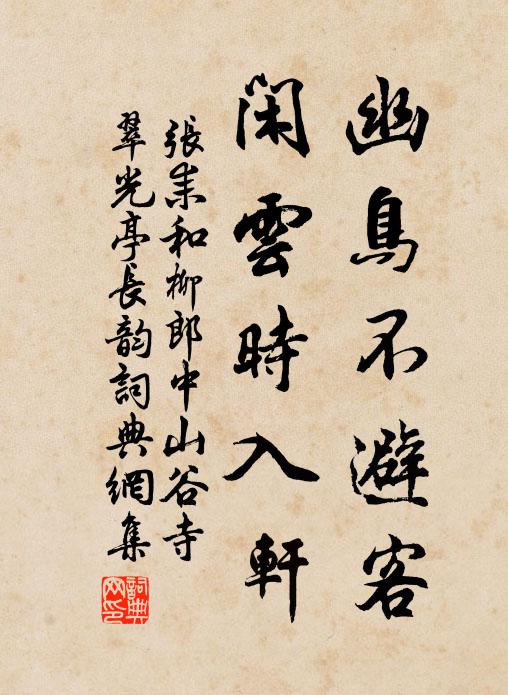 幽鳥不避客
閑雲時入軒
張耒和柳郎中山谷寺
翠光亭長韵詞典網集
詞典網印